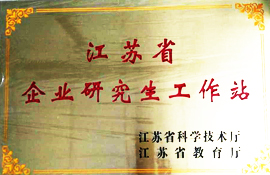 江苏省
企业研究生工作站
江苏省科学技术厅
江苏省教育厅